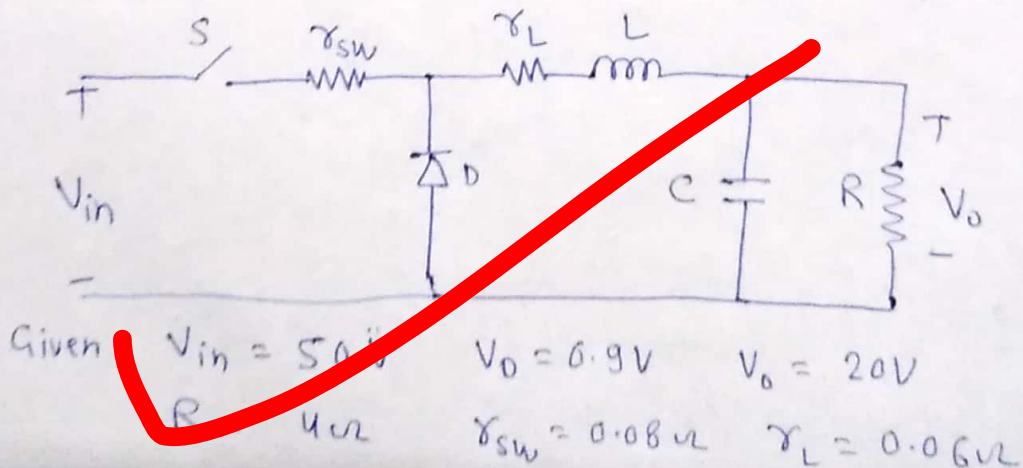 S r_sw r_L L
+ +
V_in D C R V_o
- -
Given V_in = 50 V_D = 0.9V V_o = 20V
R 4Ω r_sw = 0.08Ω r_L = 0.06Ω